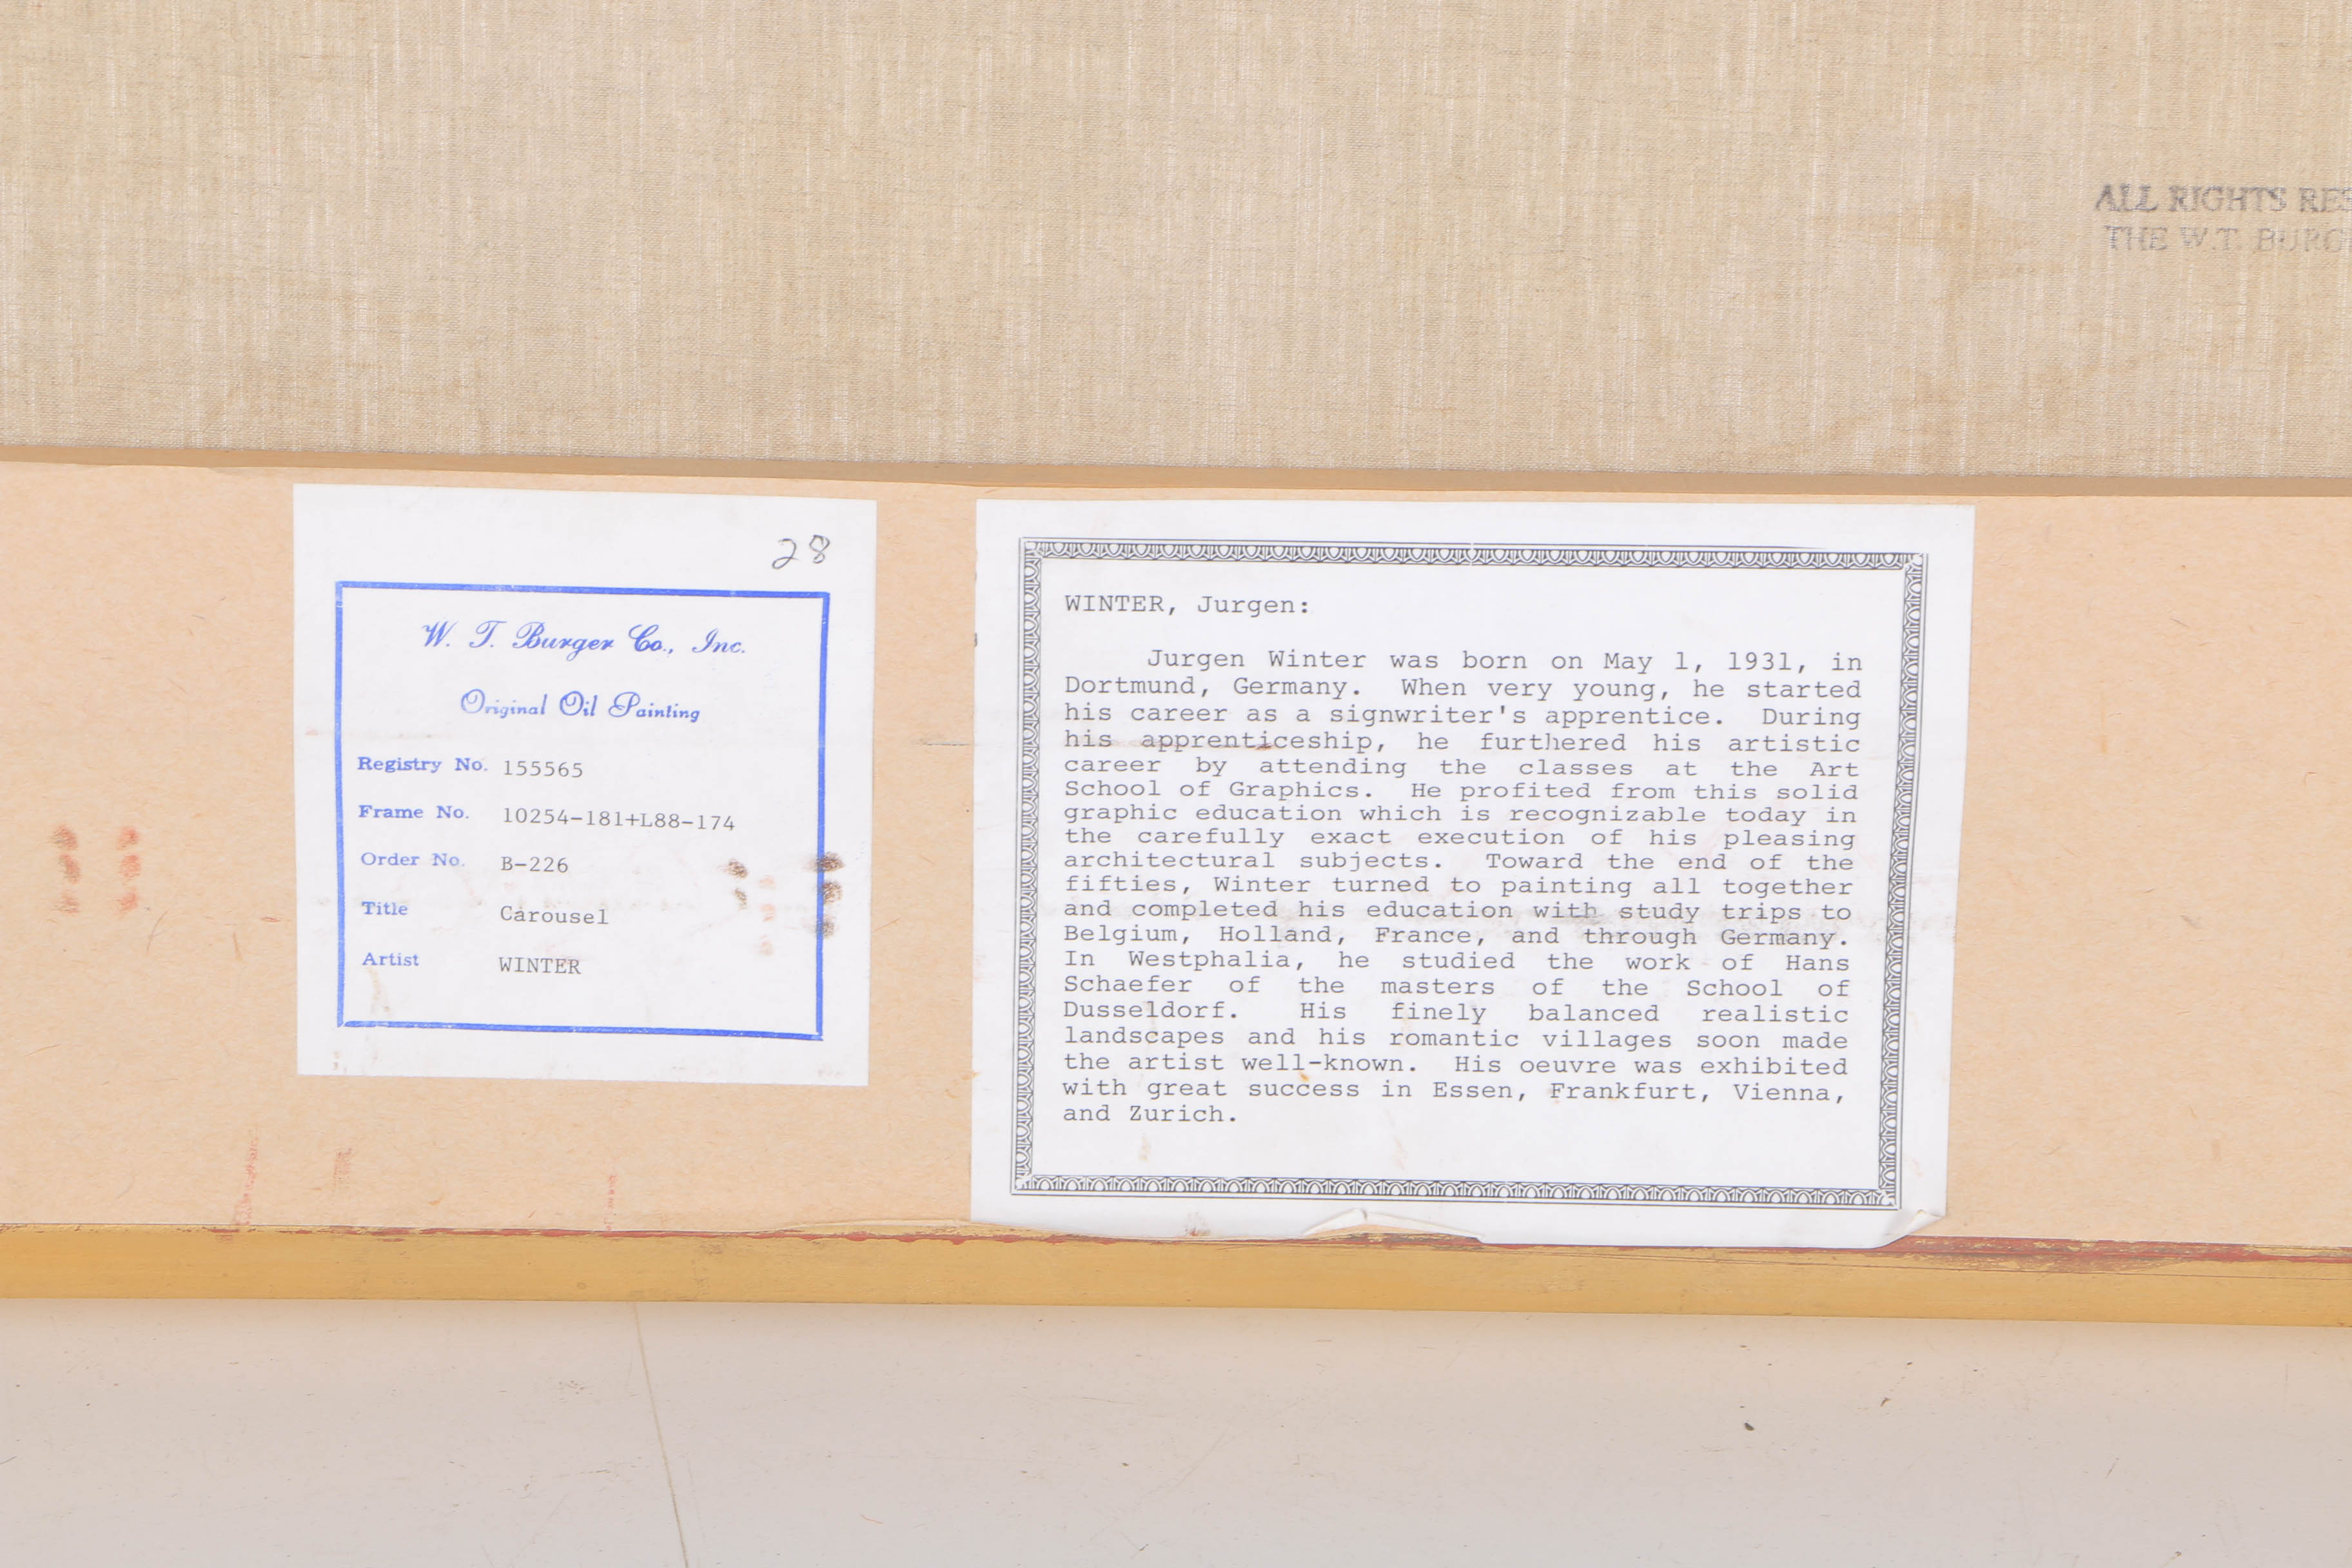 ALL RIGHTS RES
THE W.T. BURG
28
W. T. Burger Co., Inc.
Original Oil Painting
Registry No. 155565
Frame No. 10254-181+L88-174
Order No. B-226
Title Carousel
Artist WINTER
WINTER, Jurgen:
Jurgen Winter was born on May 1, 1931, in
Dortmund, Germany. When very young, he started
his career as a signwriter's apprentice. During
his apprenticeship, he furthered his artistic
career by attending the classes at the Art
School of Graphics. He profited from this solid
graphic education which is recognizable today in
the carefully exact execution of his pleasing
architectural subjects. Toward the end of the
fifties, Winter turned to painting all together
and completed his education with study trips to
Belgium, Holland, France, and through Germany.
In Westphalia, he studied the work of Hans
Schaefer of the masters of the School of
Dusseldorf. His finely balanced realistic
landscapes and his romantic villages soon made
the artist well-known. His oeuvre was exhibited
with great success in Essen, Frankfurt, Vienna,
and Zurich.